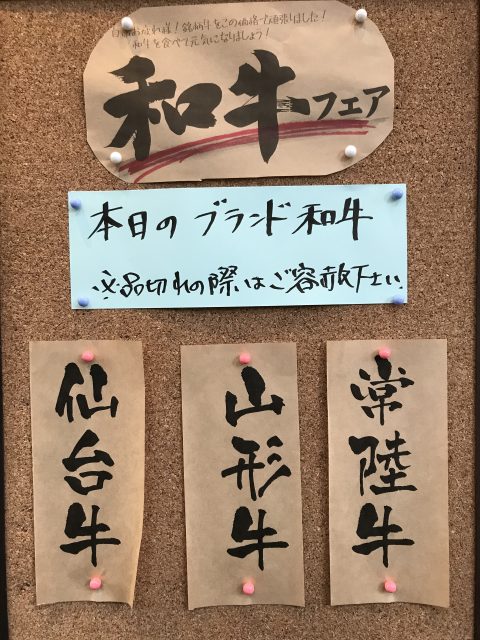 日頃お疲れ様!銘柄牛をこの価格で頑張りました!
和牛を食べて元気になりましょう!
和牛フェア
本日のブランド和牛
※品切れの際はご容赦下さい
常陸牛
山形牛
仙台牛